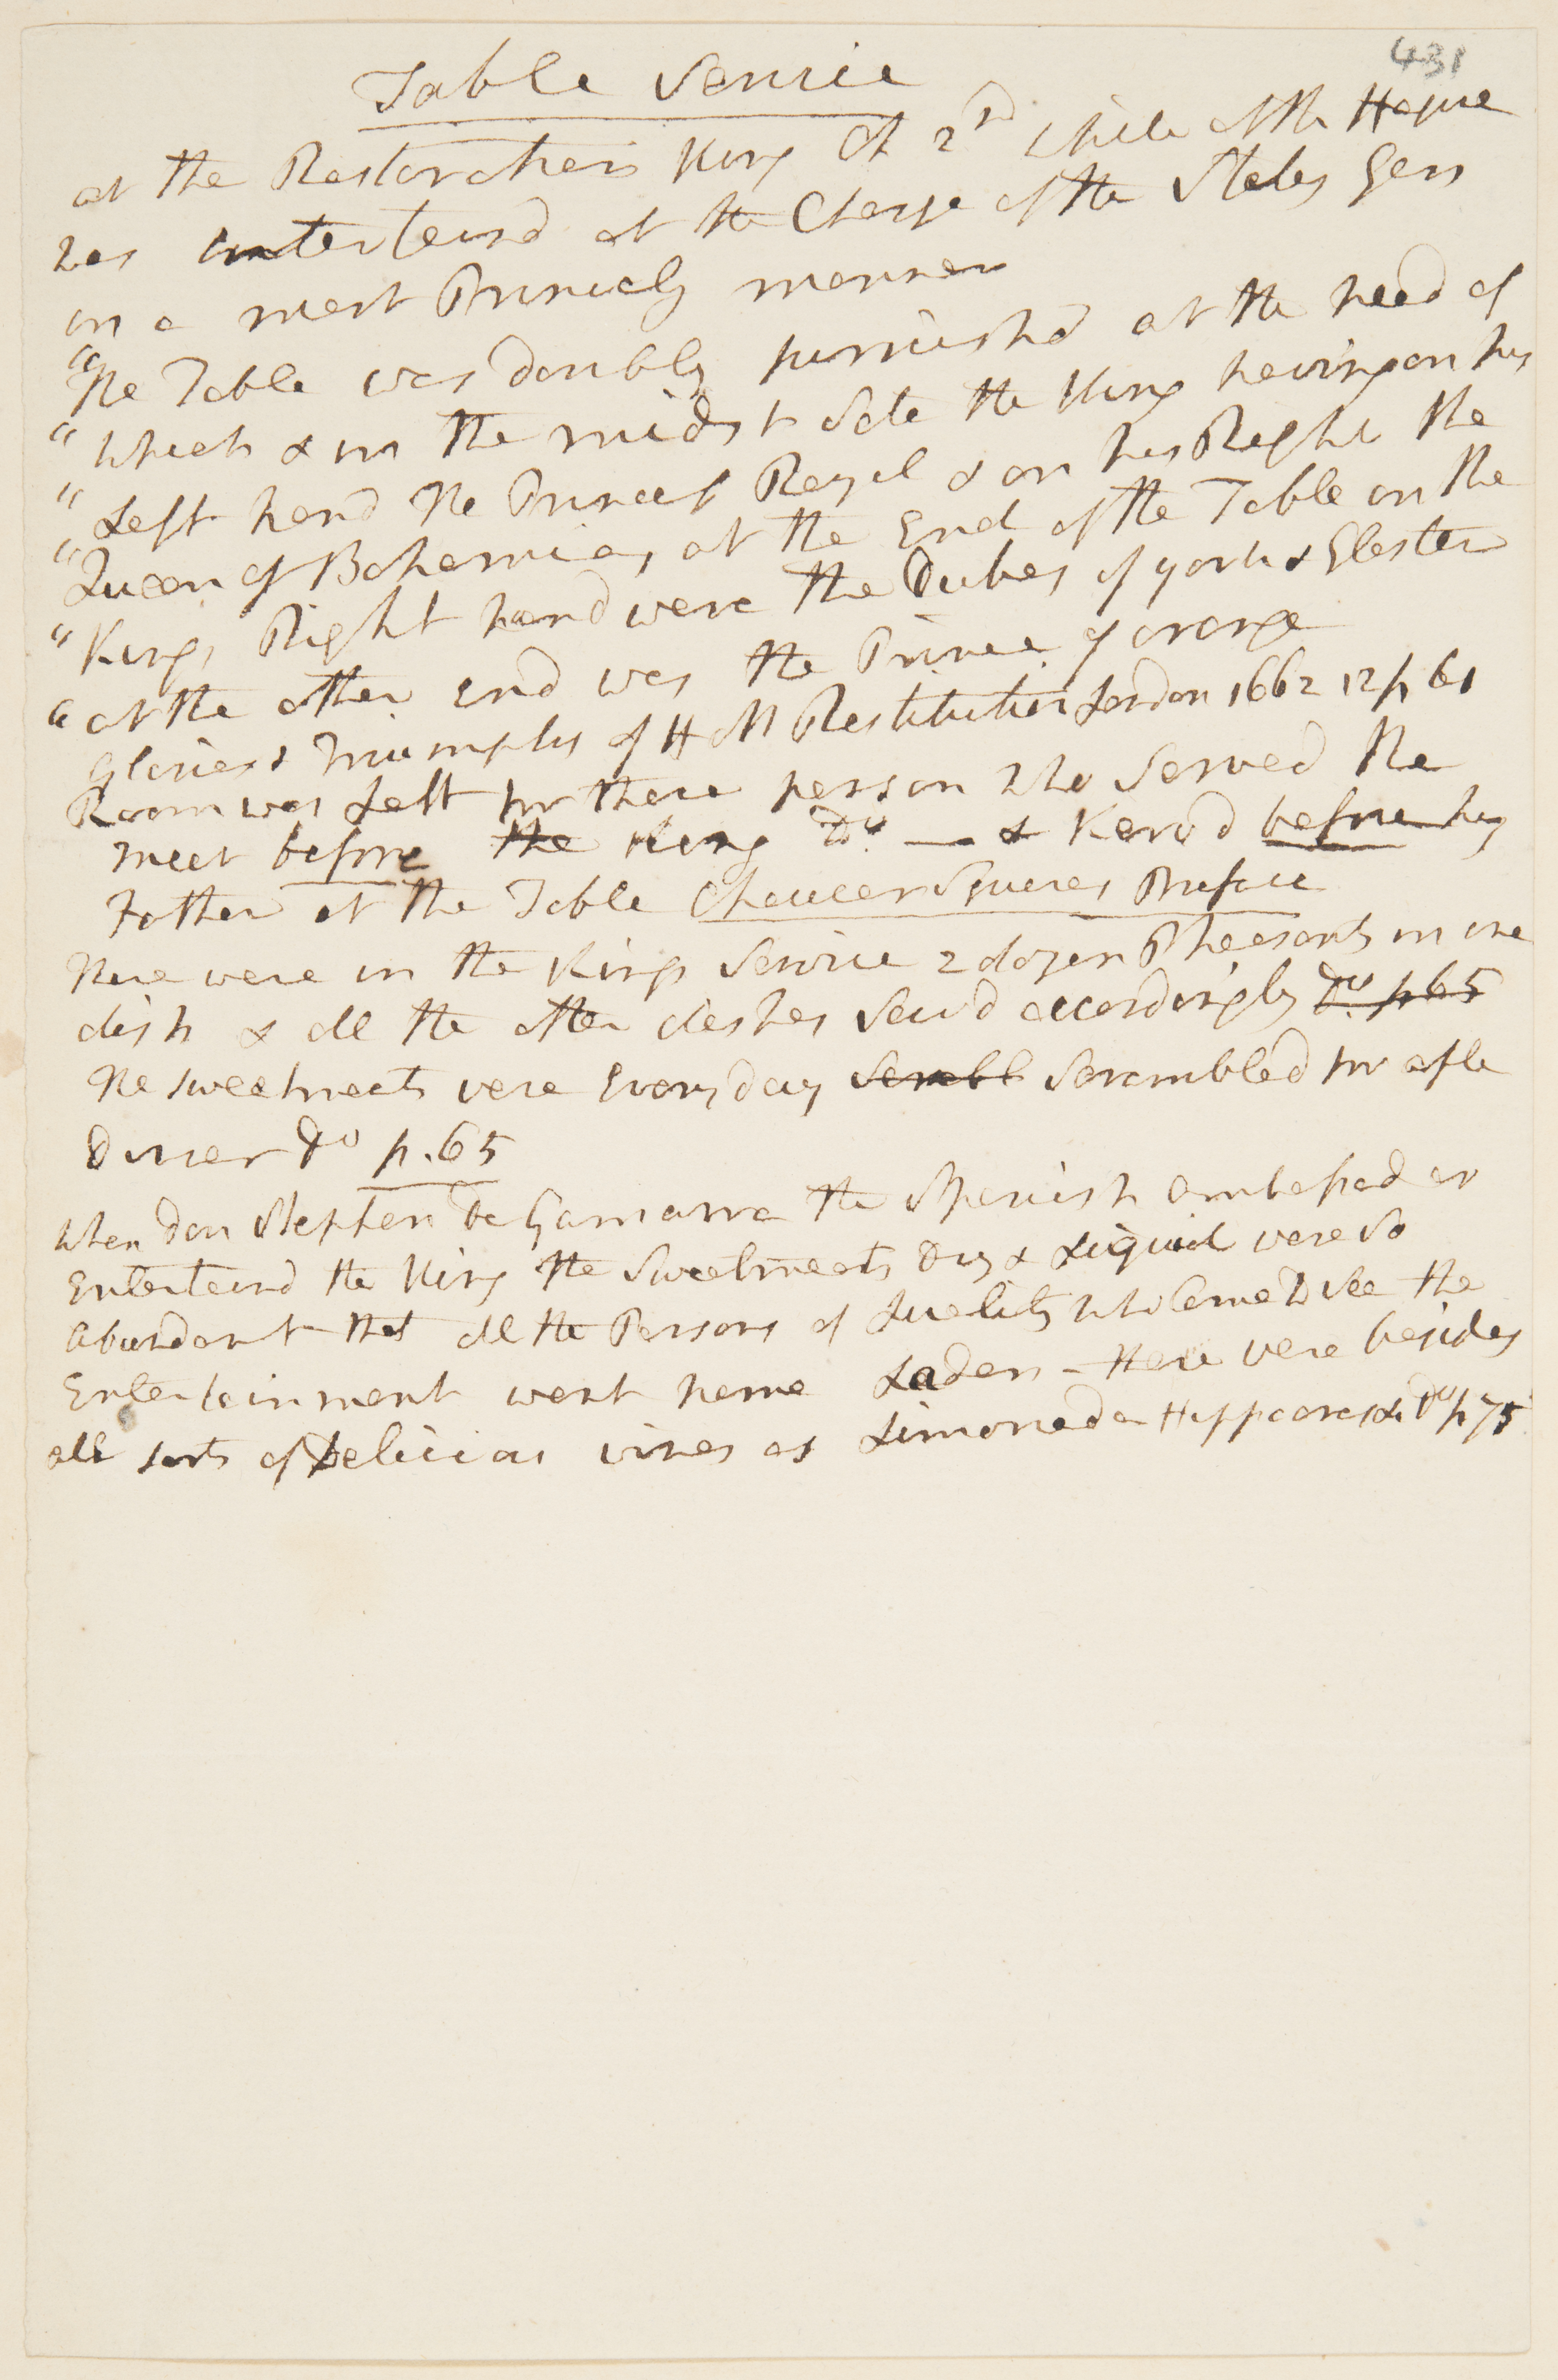 431
Table Service
at the Restoration King Ch 2nd while at the Hague
was entertaind at the Charge of the States Gen
in a most Princely manner
"The Table was doubly furnishd at the head of
"which & in the midst Sate the King having on his
"Left hand the Princess Royal & on his Right the
"Queen of Bohemia, at the End of the Table on the
"Kings Right hand were the Dukes of york & Glester
"at the other End was the Prince of orange
Glories & Triumphs of H M Restitution London 1662 12 p 61
Room was Left for those person who Served the
meat before the King Do. — & Kervd before his
Father at the Table Chaucer Squeres Preface
There were in the Kings Service 2 dozen Pheasants in one
dish & all the other dishes Servd accordingly Do. p 65
The sweetmeats were Every day Scrabb Scrambled for after
Dinner Do p. 65
When Don Stephen De Gamarra the Spanish Ambassador
Entertaind the King the Sweetmeats Dry & Liquid were So
abundant that all the Persons of Quality who Came to See the
Entertainment went home Laden - there were besides
all sorts of Delicious wines as Limonada Hippocras &c Do p 75